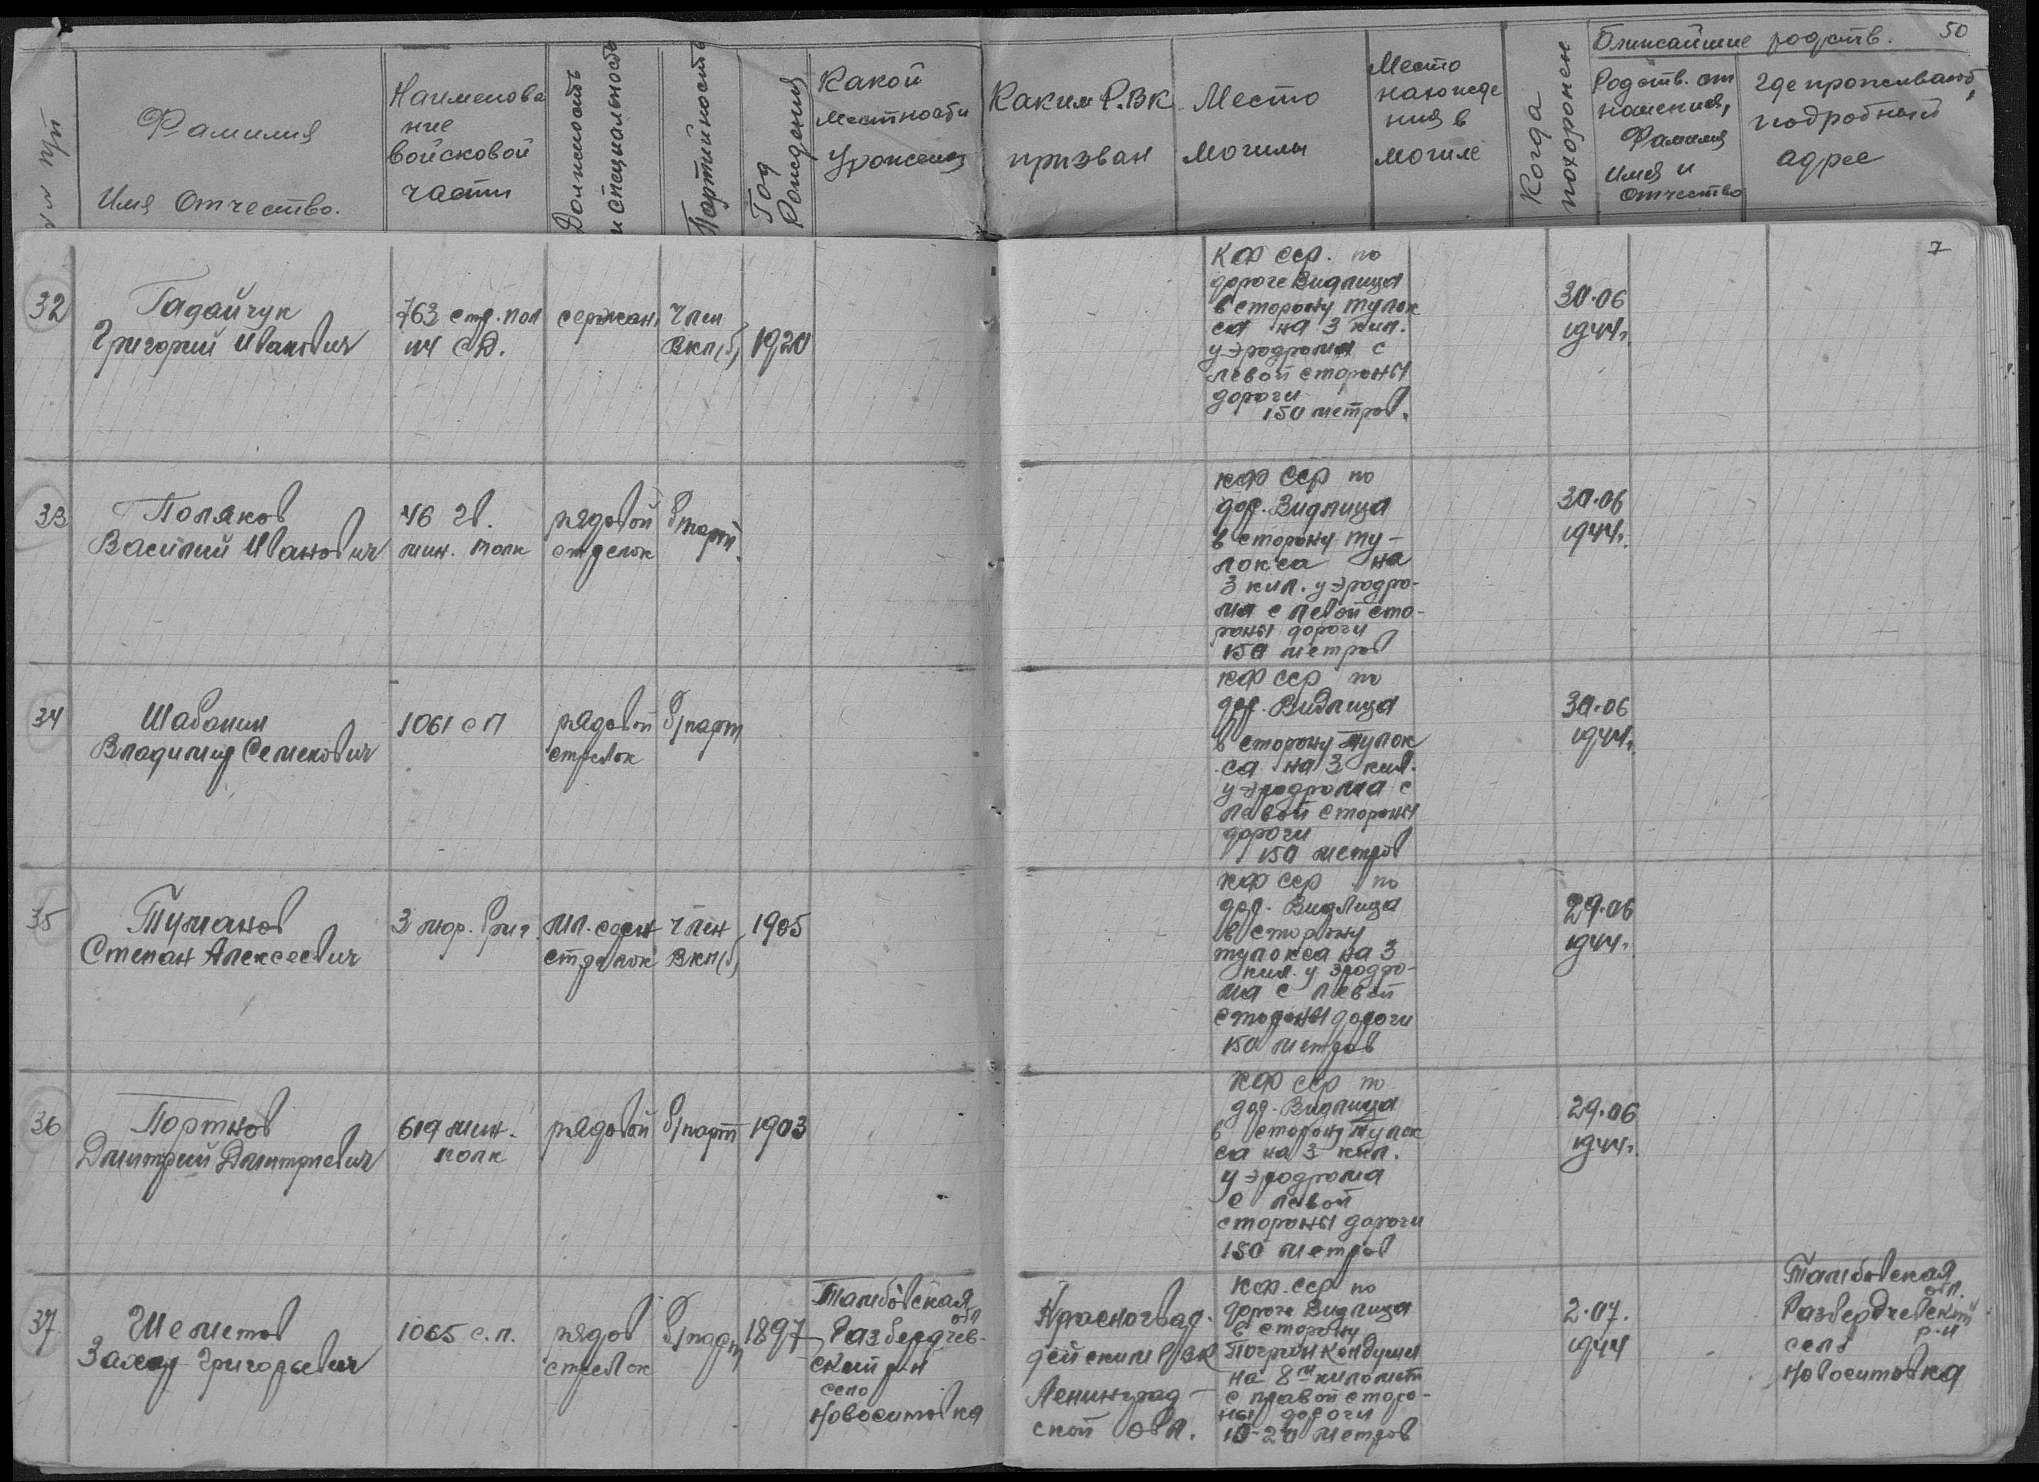 50
№№ п/п
Фамилия
Имя Отчество.
Наименова
ние
войсковой
части
Должность
и специальность
Партийность
Год
Рождения
Какой
местности
уроженец
Каким Р.В.К
призван
Место
могилы
Место
нахожде
ния в
могиле
Когда
похоронен
Ближайшие родств.
Родств. от
ношения,
Фамилия
Имя и
Отчество
Где проживают,
подробный
адрес
7
32
Гадайчук
Григорий Иванович
763 стр. пол
114 СД.
сержан
Член
ВКП(б)
1920
КФ ССР. по
дороге Видлица
в сторону Тулок
са на 3 кил.
у эродрома с
левой стороны
дороги
150 метров.
30.06
1944г.
33
Поляков
Василий Иванович
46 гв.
мин. полк
рядовой
стрелок
б/парт.
КФ ССР по
дор. Видлица
в сторону Ту-
локса на
3 кил. у эродро-
ма с левой сто-
роны дороги
150 метров
30.06
1944г.
34
Шабанин
Владимир Семенович
1061 сп
рядовой
стрелок
б/парт
КФ ССР по
дор. Видлица
в сторону Тулок
са на 3 кил.
у эродрома с
левой стороны
дороги
150 метров
30.06
1944г.
35
Туманов
Степан Алексеевич
3 мор. бриг.
мл. серж
стрелок
член
ВКП(б)
1905
КФ ССР по
дор. Видлица
в сторону
Тулокса на 3
кил. у эродро-
ма с левой
стороны дороги
150 метров
29.06
1944г.
36
Портнов
Дмитрий Дмитриевич
619 мин.
полк
рядовой
б/парт
1903
КФ ССР по
дор. Видлица
в сторону Тулок
са на 3 кил.
у эродрома
с левой
стороны дороги
150 метров
29.06
1944г.
37
Шеметов
Захар Григорьевич
1065 с.п.
рядов
стрелок
б/парт
1897
Тамбовская
обл
Разбердчев-
ский р-н
село
Новоситовка
Красногвар-
дейским РВК
Ленинград-
ской обл.
КФ. ССР по
дороге Видлица
в сторону
Погран Кондуши
на 8м километ
с правой сторо-
ны дороги
15-20 метров
2.07.
1944
Тамбовская
обл.
Разбердчевский
р-н
село
Новоситовка